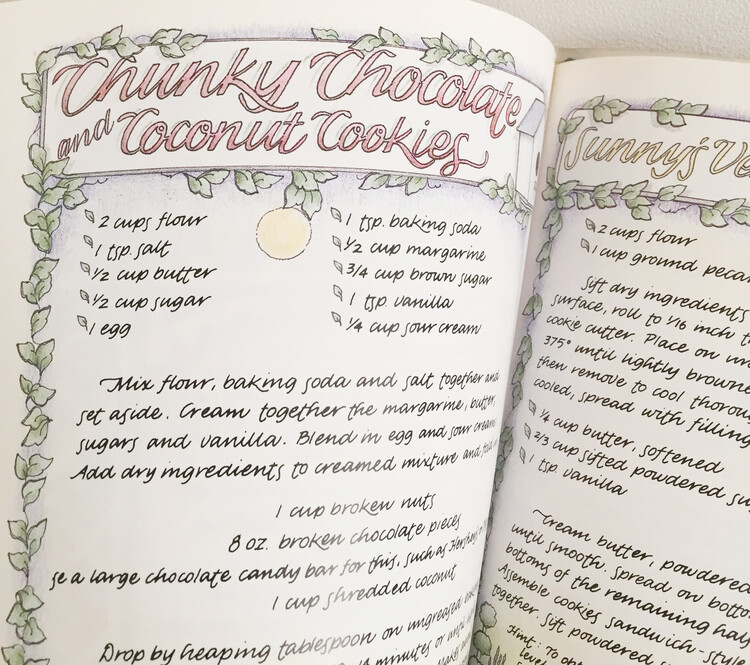 Chunky Chocolate
and Coconut Cookies
2 cups flour
1 tsp. salt
1/2 cup butter
1/2 cup sugar
1 egg
1 tsp. baking soda
1/2 cup margarine
3/4 cup brown sugar
1 tsp. vanilla
1/4 cup sour cream
Mix flour, baking soda and salt together and
set aside. Cream together the margarine, butter,
sugars and vanilla. Blend in egg and sour cream
Add dry ingredients to creamed mixture and
1 cup broken nuts
8 oz. broken chocolate pieces
se a large chocolate candy bar for this, such as
1 cup shredded coconut
Drop by heaping tablespoon on ungreased
minutes or until
Sunny's Ve
2 cups flour
1 cup ground peca
Sift dry ingredients
surface, roll to 1/16 inch t
cookie cutter. Place on un
375° until lightly browne
then remove to cool thorou
cooled, spread with filling
1/4 cup butter, softened
2/3 cup sifted powdered su
1 tsp. vanilla
Cream butter, powdered
until smooth. Spread on botto
bottoms of the remaining hal
Assemble cookies sandwich-style
together. Sift powdered s
Hint: To obt
level